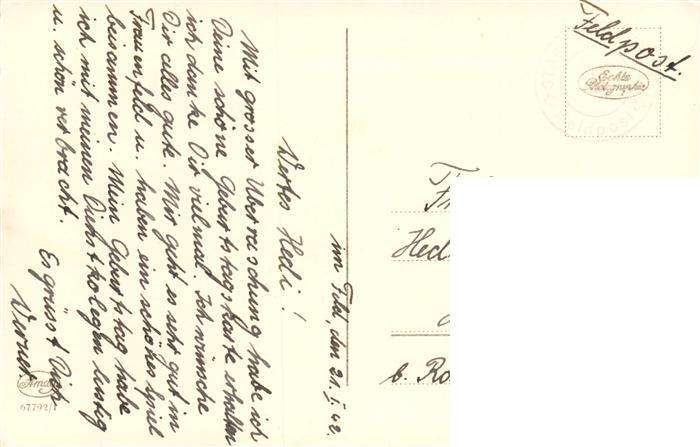 im Feld, den 21. I. 42.
Wertes Hedi!
Mit grosser Überraschung habe ich
Deine schöne Geburtstagskarte erhalten
ich danke Dir vielmal. Ich wünsche
Dir alles gute. Mir geht es sehr gut in
Frauenfeld u. haben ein schönes Spiel
beisammen. Mein Geburtstag habe
ich mit meinen Dienstkolegen lustig
u. schön verbracht.
Es grüsst Dich
Werner.
Feldpost.
Echte
Photographie
Hed
b. Ro
Amag
67792/1